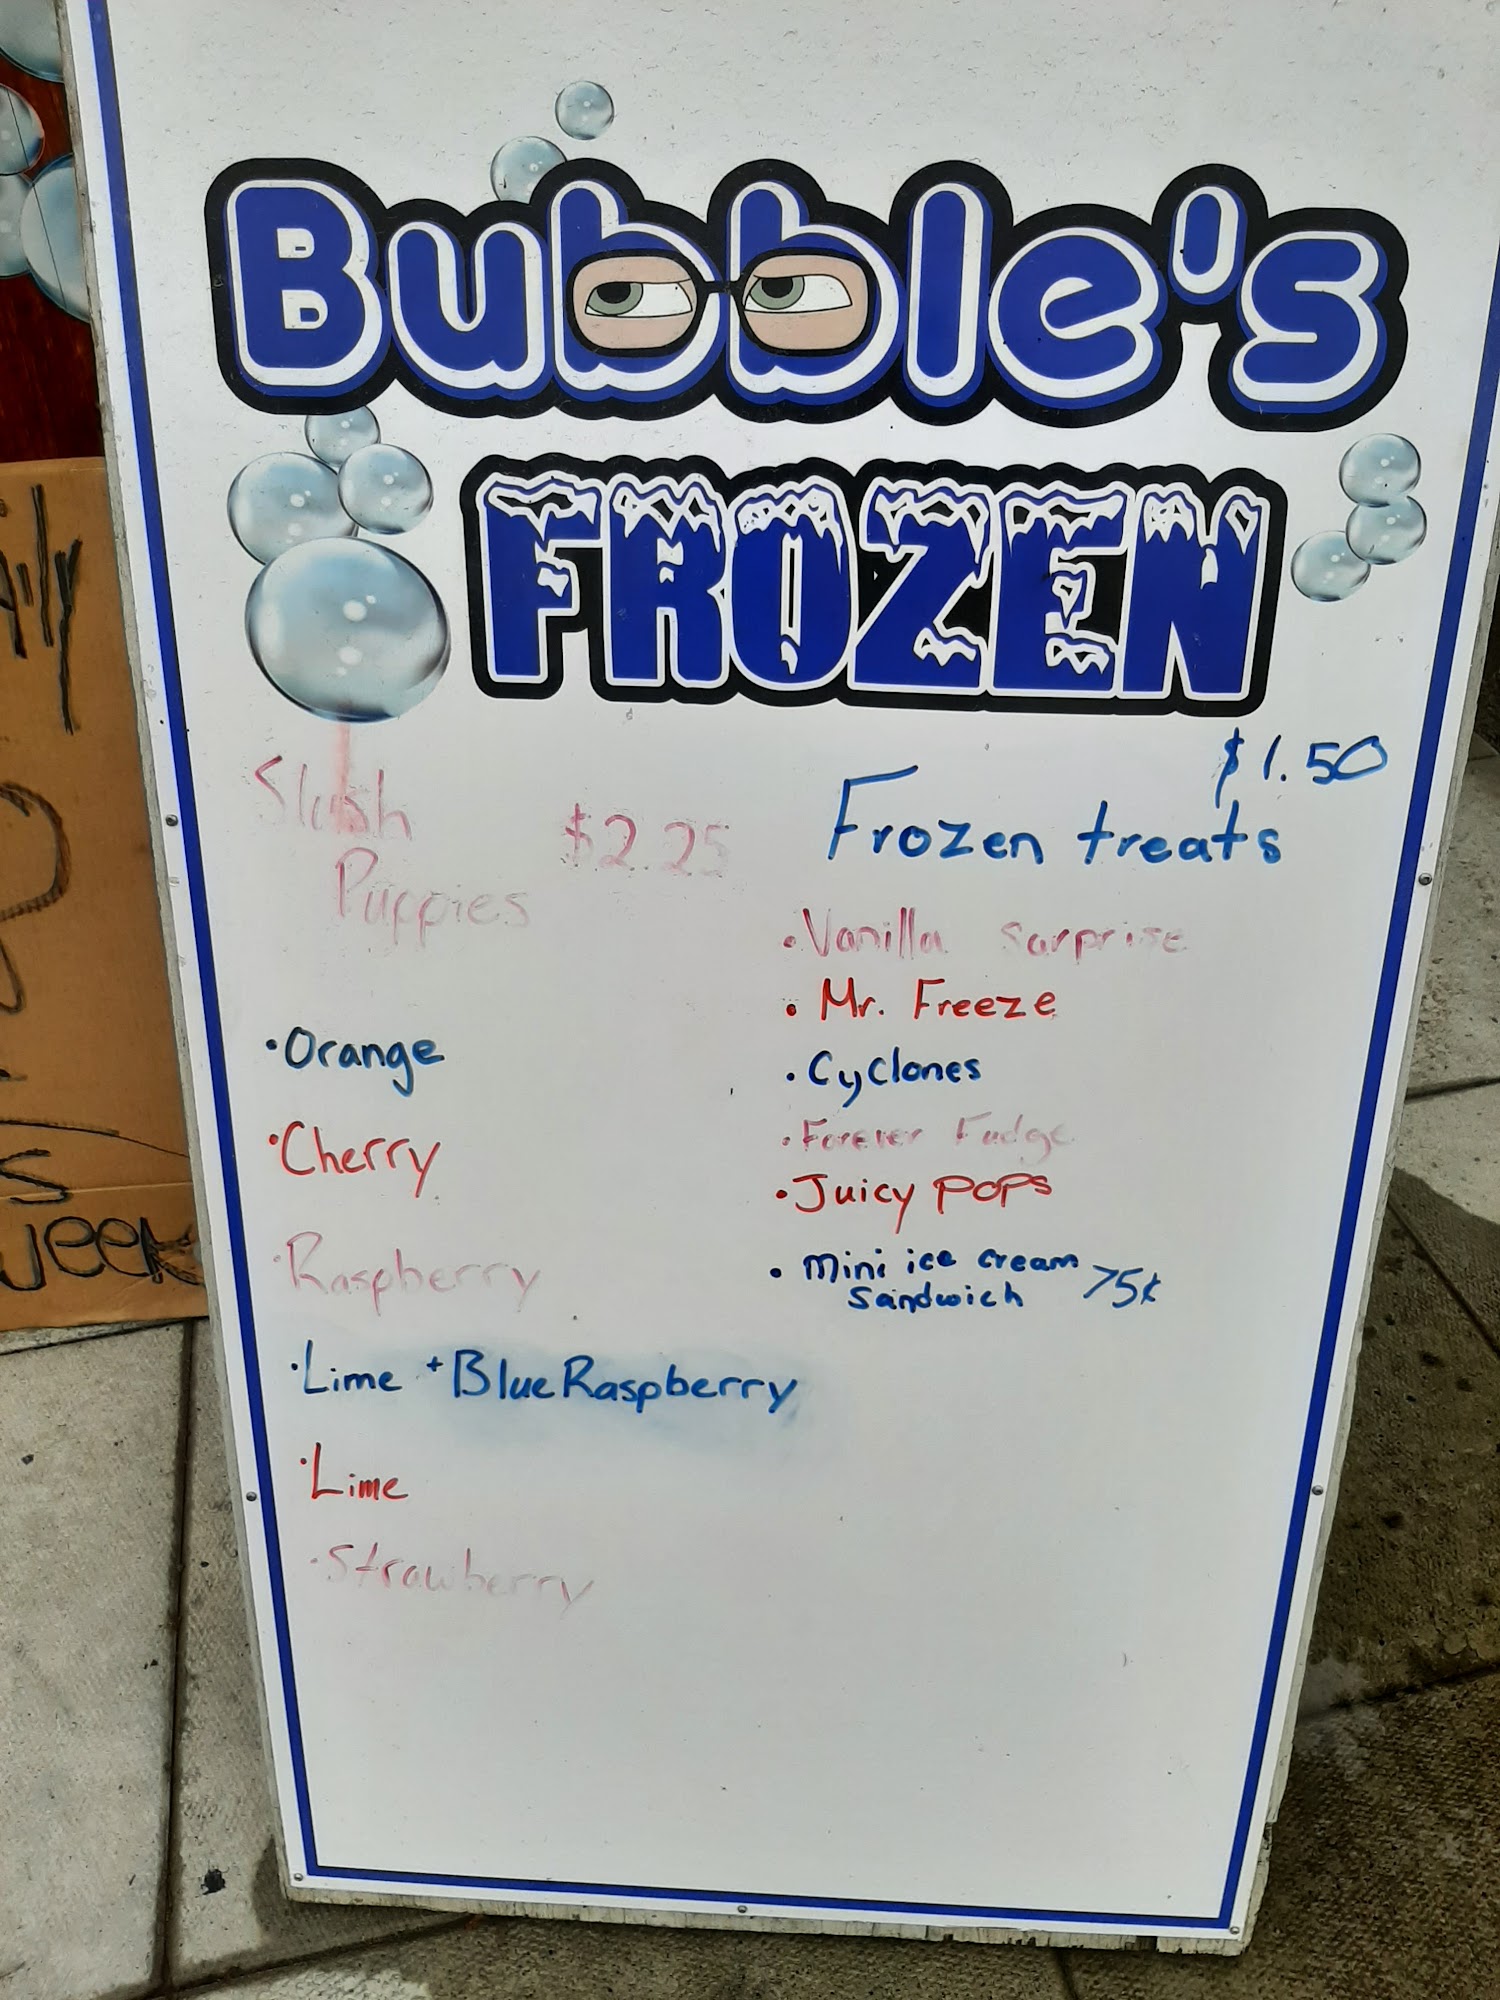 Bubble's
FROZEN
Slush
Puppies
$2.25
• Orange
• Cherry
• Raspberry
• Lime + Blue Raspberry
• Lime
• Strawberry
$1.50
Frozen treats
• Vanilla surprise
• Mr. Freeze
• Cyclones
• Forever Fudge
• Juicy POPS
• mini ice cream
sandwich 75¢